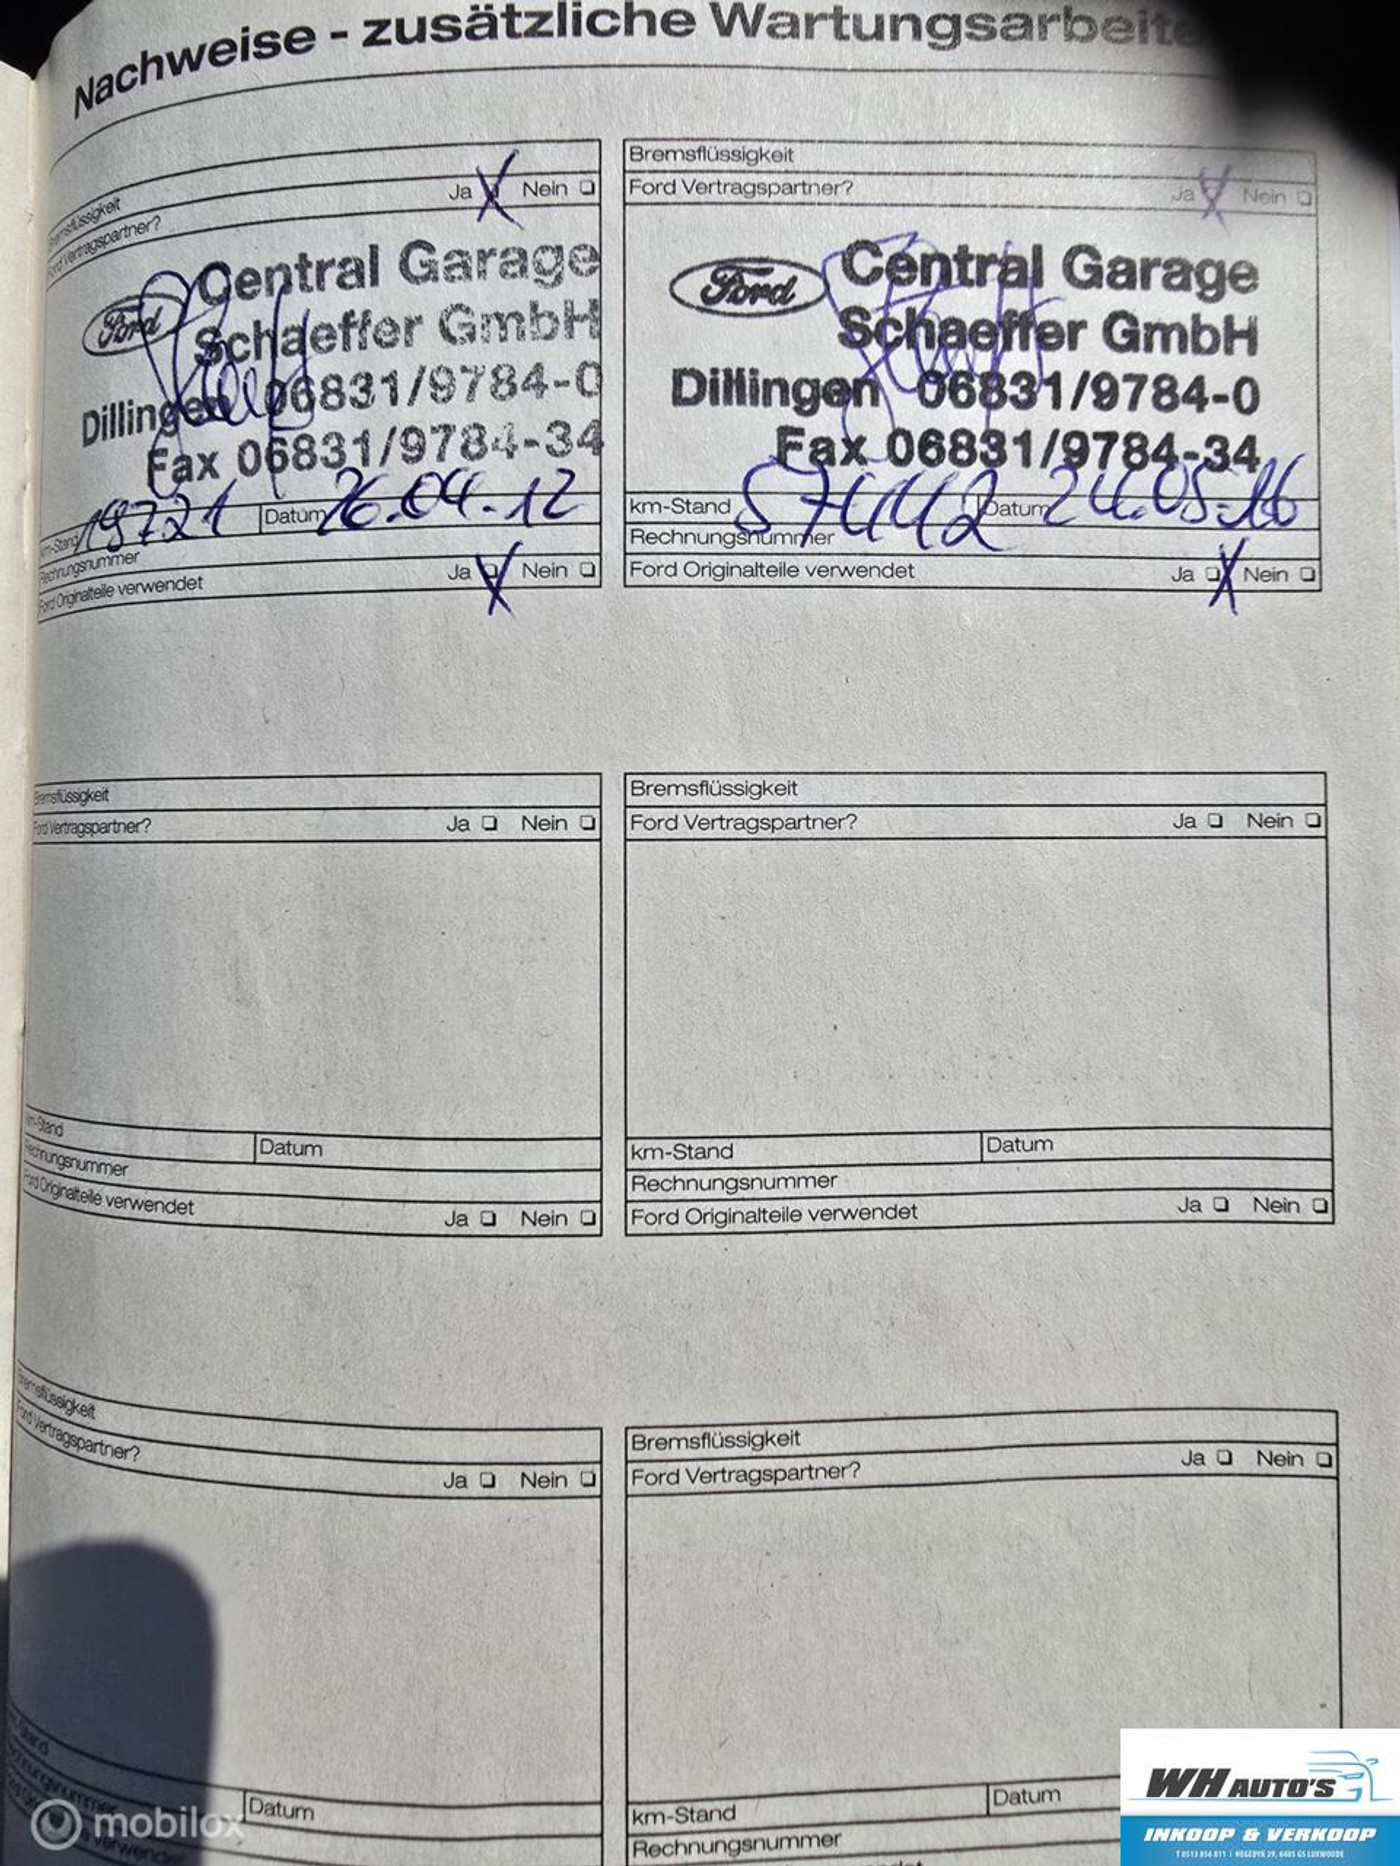 Nachweise - zusätzliche Wartungsarbeite
Bremsflüssigkeit
Ford Vertragspartner? Ja Nein
Ford Central Garage
Schaeffer GmbH
Dillingen 06831/9784-0
Fax 06831/9784-34
km-Stand 19721 Datum 26.04.12
Rechnungsnummer
Ford Originalteile verwendet Ja Nein
Bremsflüssigkeit
Ford Vertragspartner? Ja Nein
Ford Central Garage
Schaeffer GmbH
Dillingen 06831/9784-0
Fax 06831/9784-34
km-Stand 57442 Datum 24.05.16
Rechnungsnummer
Ford Originalteile verwendet Ja Nein
Bremsflüssigkeit
Ford Vertragspartner? Ja Nein
km-Stand Datum
Rechnungsnummer
Ford Originalteile verwendet Ja Nein
Bremsflüssigkeit
Ford Vertragspartner? Ja Nein
km-Stand Datum
Rechnungsnummer
Ford Originalteile verwendet Ja Nein
Bremsflüssigkeit
Ford Vertragspartner? Ja Nein
Datum
Bremsflüssigkeit
Ford Vertragspartner? Ja Nein
km-Stand Datum
Rechnungsnummer
mobilox
WH AUTO'S
INKOOP & VERKOOP
T 0513 856 811 | HEGEDYK 29, 8405 GS LUXWOUDE